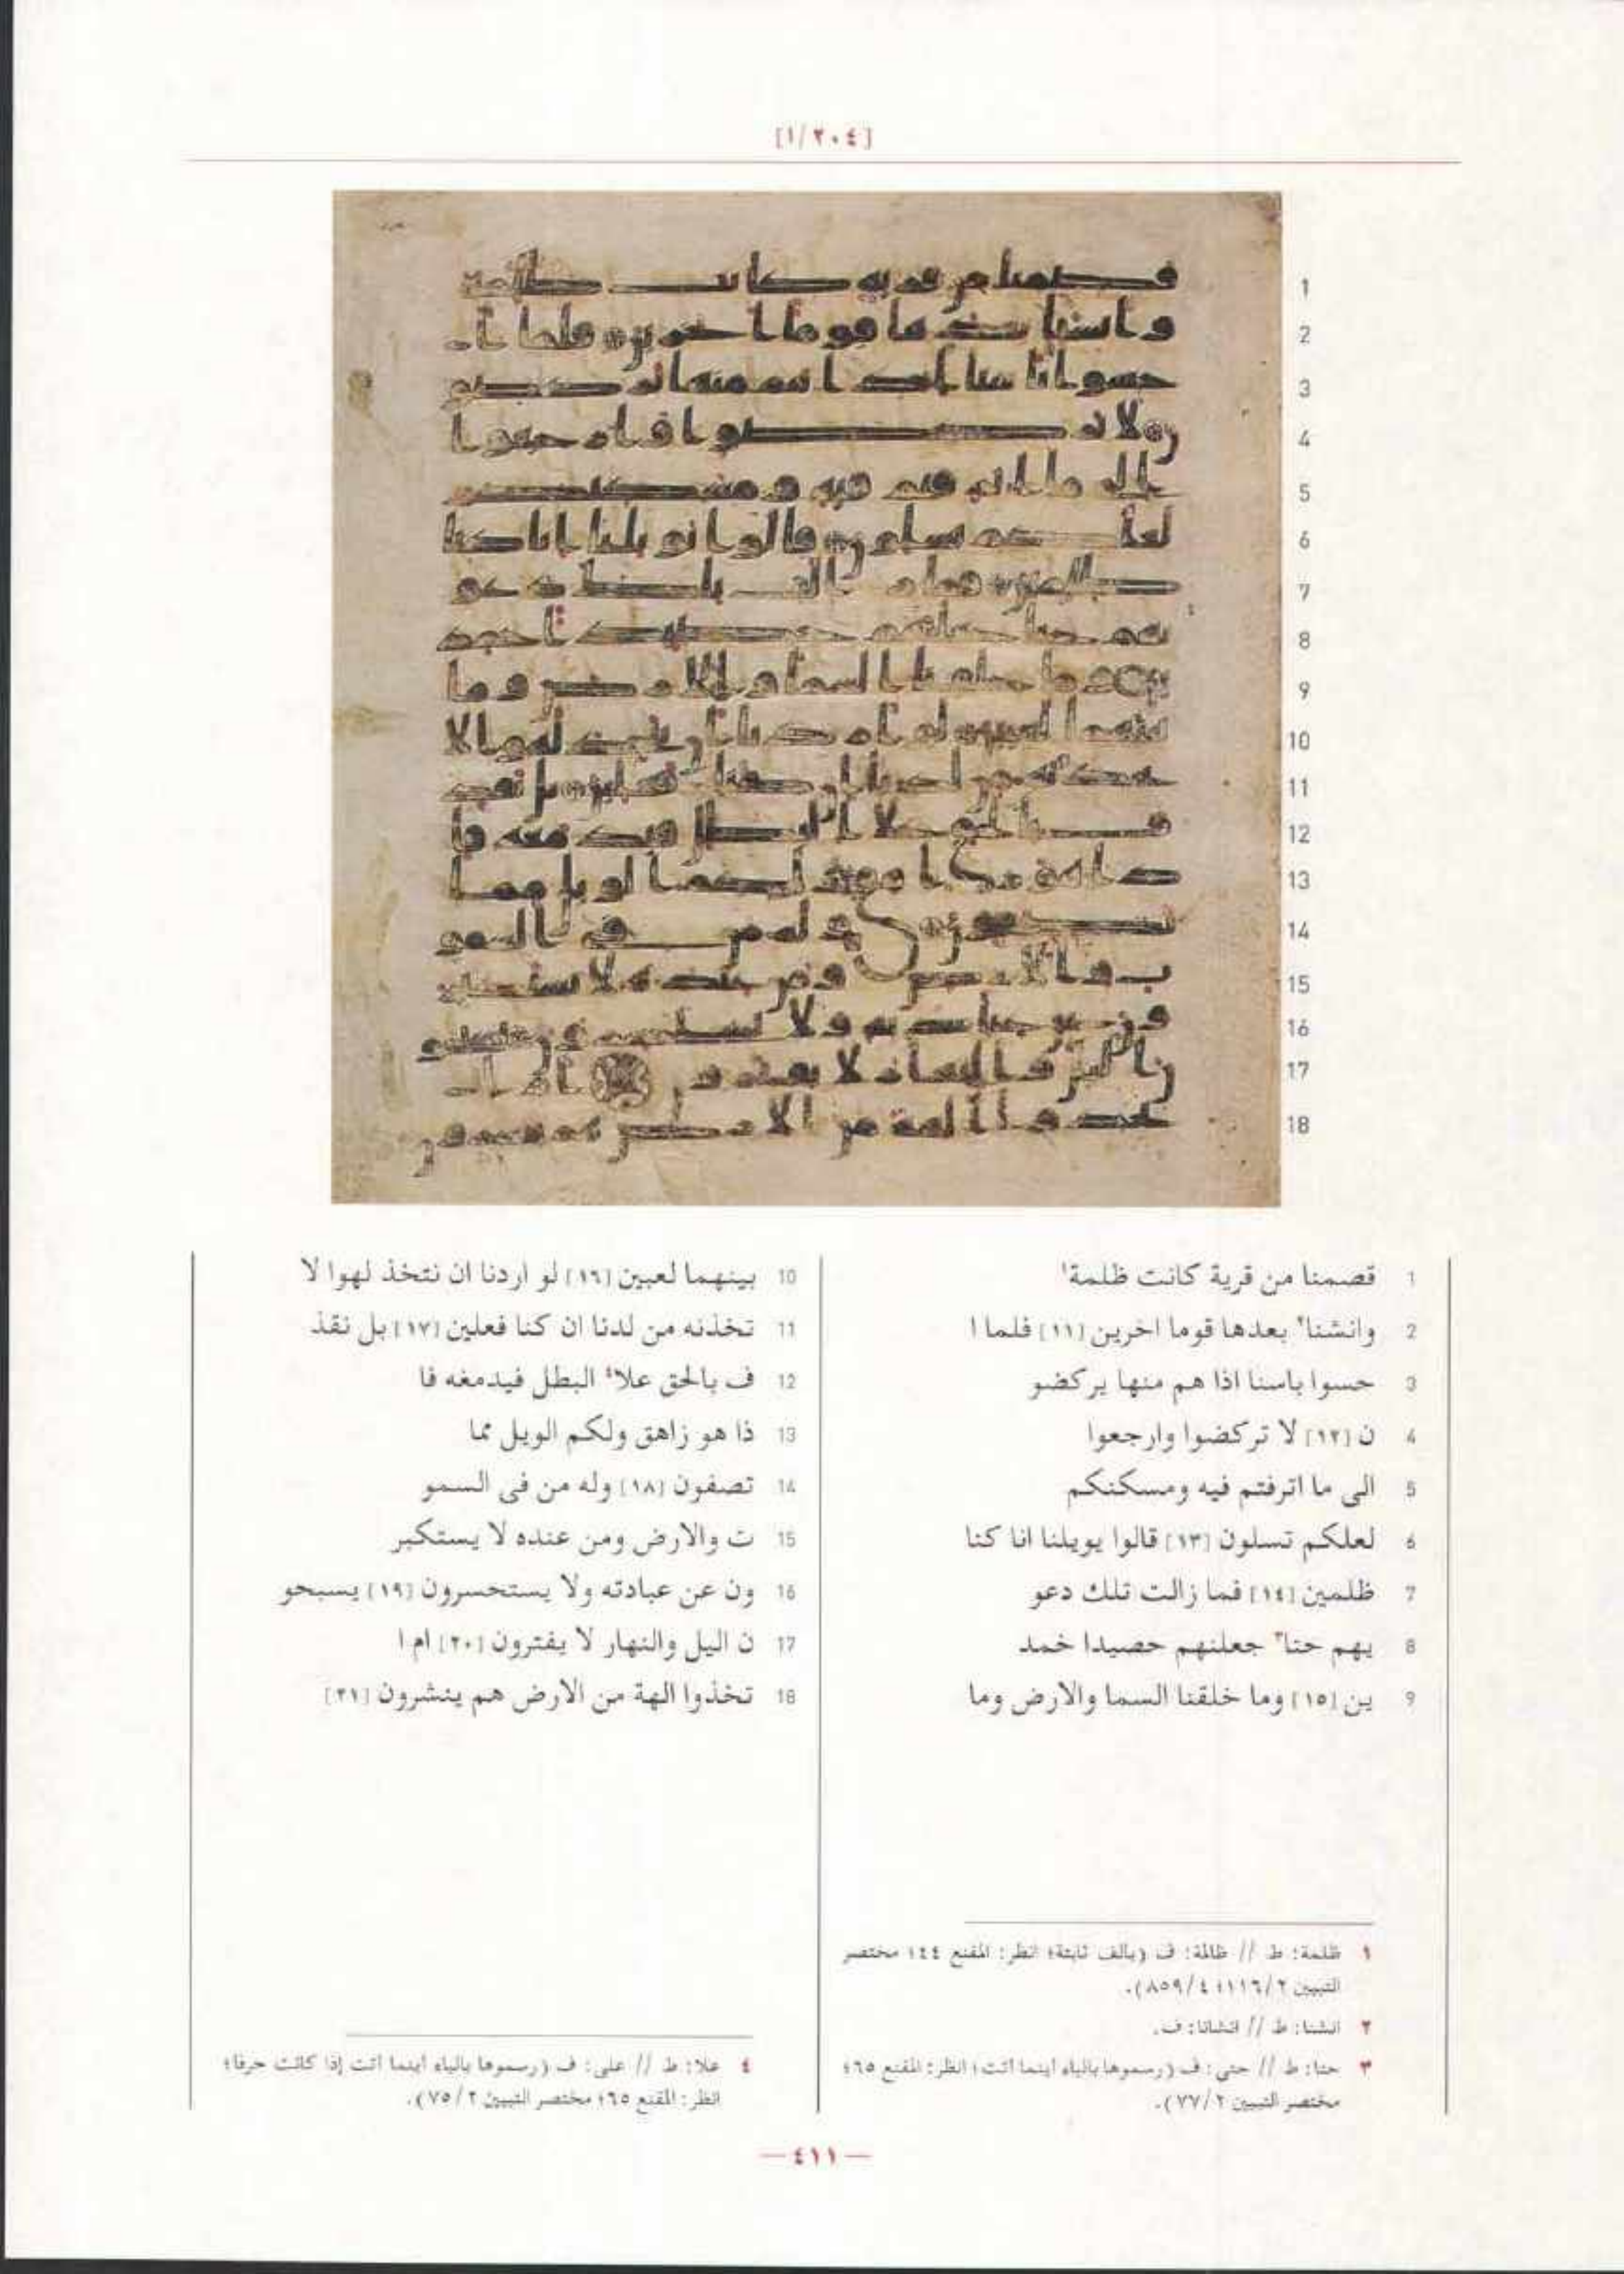 [١/٢٠٤]
1 قصمنا من قرية كانت ظلمة١
2 وانشنا٢ بعدها قوما اخرين [١١] فلما ا
3 حسوا باسنا اذا هم منها يركضو
4 ن [١٢] لا تركضوا وارجعوا
5 الى ما اترفتم فيه ومسكنكم
6 لعلكم تسلون [١٣] قالوا يويلنا انا كنا
7 ظلمين [١٤] فما زالت تلك دعو
8 يهم حتا٣ جعلنهم حصيدا خمد
9 ين [١٥] وما خلقنا السما والارض وما
10 بينهما لعبين [١٦] لو اردنا ان نتخذ لهوا لا
11 تخذنه من لدنا ان كنا فعلين [١٧] بل نقذ
12 ف بالحق علا٤ البطل فيدمغه فا
13 ذا هو زاهق ولكم الويل مما
14 تصفون [١٨] وله من فى السمو
15 ت والارض ومن عنده لا يستكبر
16 ون عن عبادته ولا يستحسرون [١٩] يسبحو
17 ن اليل والنهار لا يفترون [٢٠] ام ا
18 تخذوا الهة من الارض هم ينشرون [٢١]
١ ظلمة: ط // ظالمة: ف (بألف ثابتة؛ انظر: المقنع ٤٤؛ مختصر
التبيين ١١٦/٢؛ ٨٥٩/٤).
٢ انشنا: ط // انشانا: ف.
٣ حتا: ط // حتى: ف (رسموها بالياء أينما أتت؛ انظر: المقنع ٦٥؛
مختصر التبيين ٧٧/٢).
٤ علا: ط // على: ف (رسموها بالياء أينما أتت إذا كانت حرفا؛
انظر: المقنع ٦٥؛ مختصر التبيين ٧٥/٢).
— ٤١١ —